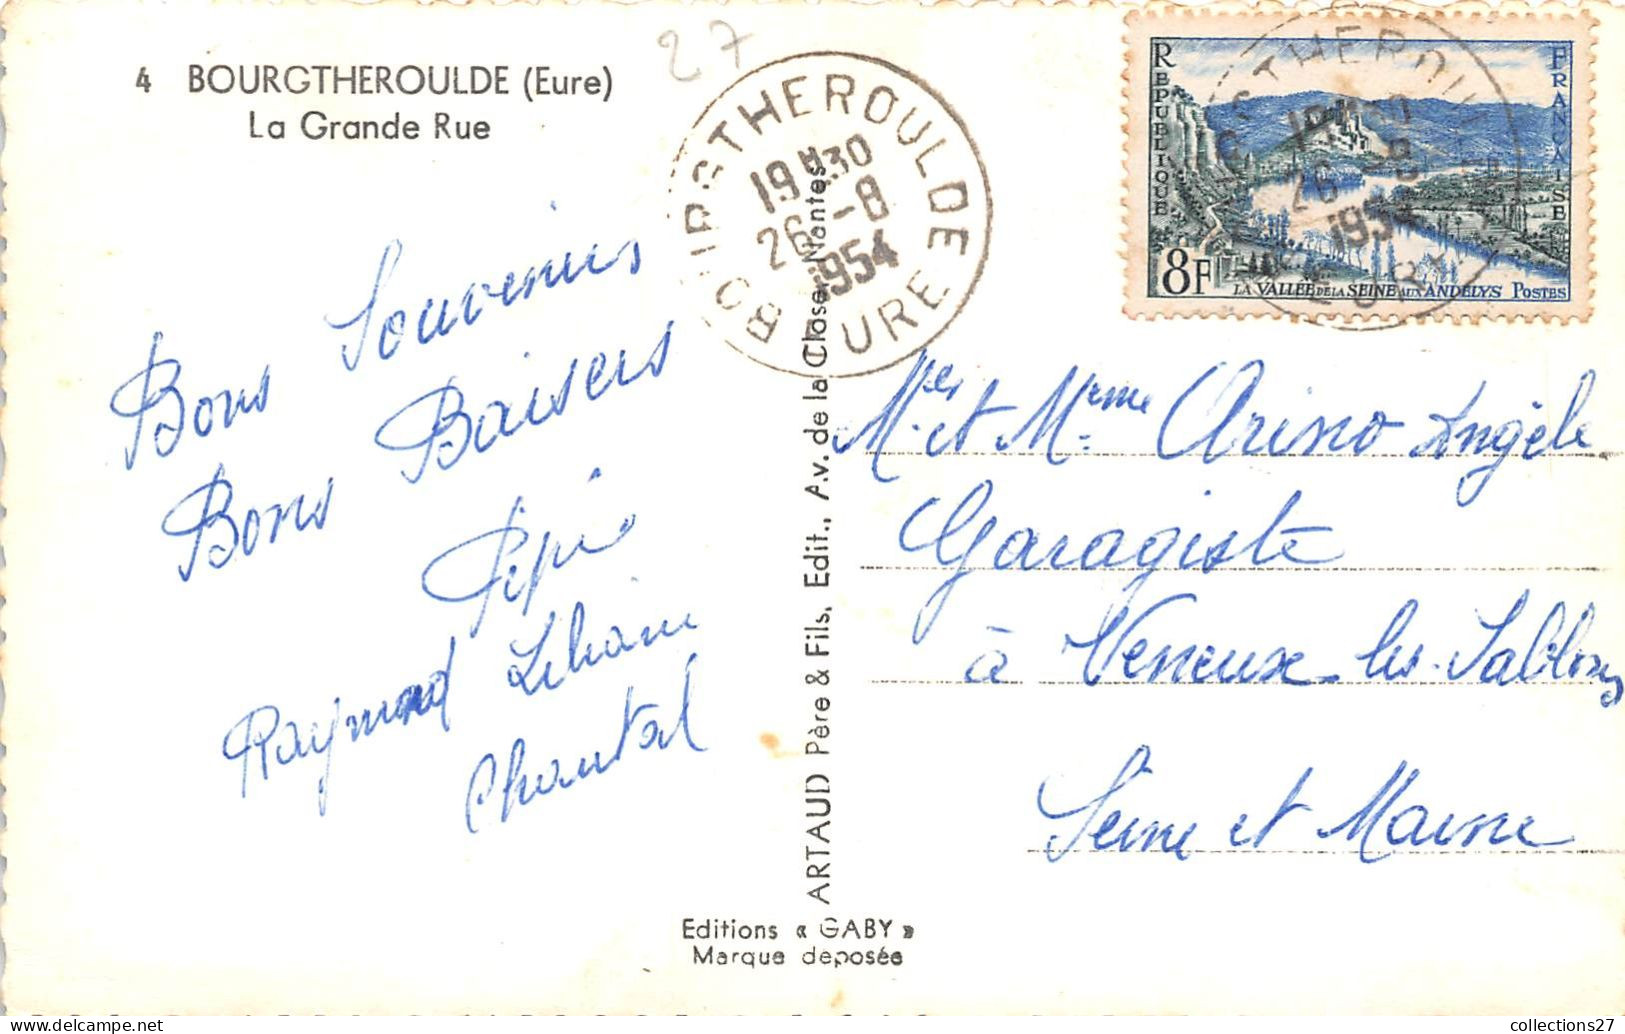 27
4 BOURGTHEROULDE (Eure)
La Grande Rue
BOURGTHEROULDE
19 H30
26 -8
1954
EURE
REPUBLIQUE
FRANÇAISE
8F
LA VALLÉE DE LA SEINE AUX ANDELYS POSTES
BOURGTHEROULDE
19 H30
26 -8
1954
EURE
Bons Souvenirs
Bons Baisers
Pépé
Raymond Liliane
Chantal
ARTAUD Père & Fils, Edit., Av. de la Close, Nantes
Mr et Mme Arino Angèle
Garagiste
à Veneux-les-Sablons
Seine et Marne
Editions « GABY »
Marque deposée
collections27